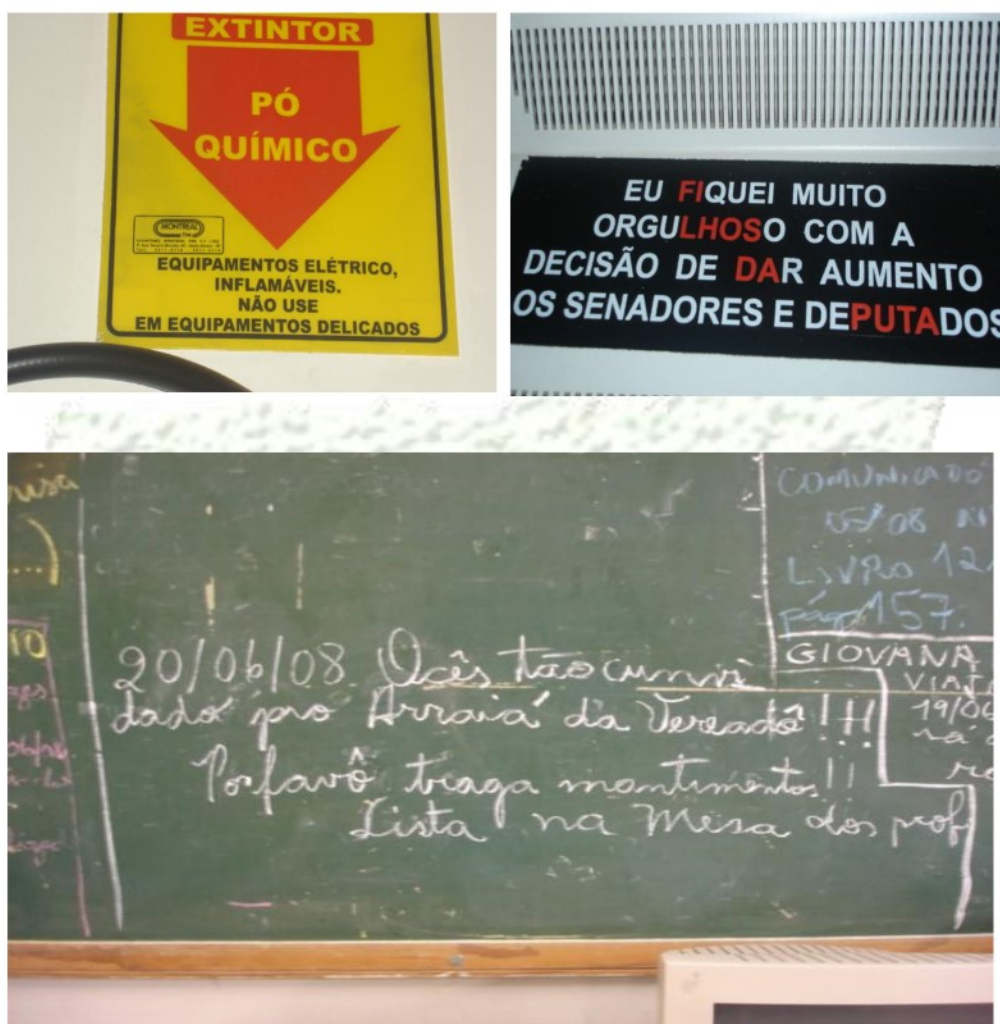 EXTINTOR
PÓ
QUÍMICO
MONTREAL
EQUIPAMENTOS ELÉTRICO,
INFLAMÁVEIS.
NÃO USE
EM EQUIPAMENTOS DELICADOS
EU FIQUEI MUITO
ORGULHOSO COM A
DECISÃO DE DAR AUMENTO
OS SENADORES E DEPUTADOS
COMUNICADO
LIVRO 12
pág 157.
10
20/06/08 Ocês tão cunvi
dado pro Arraiá da Vereadô!!!
Porfavô traga mantimentos!!
Lista na Mesa dos prof
GIOVANA
19/06